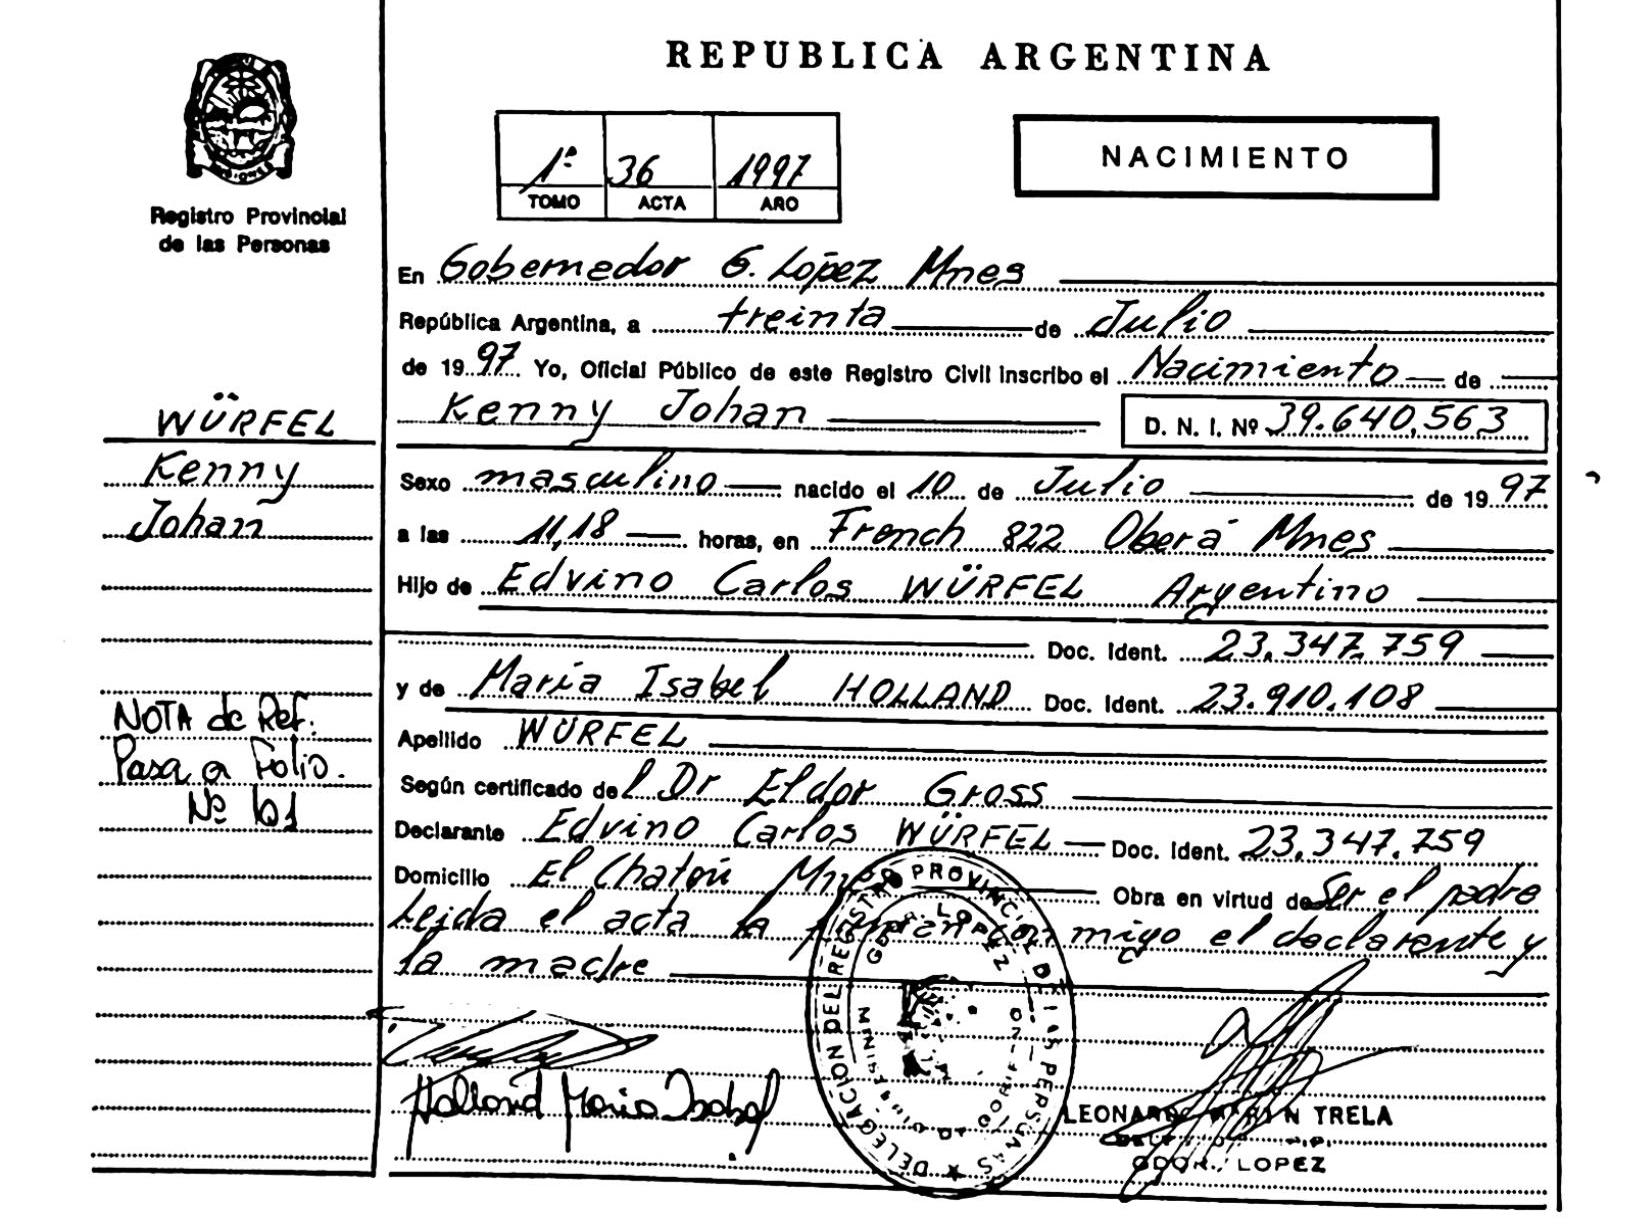 REPUBLICA ARGENTINA
1º 36 1997
TOMO ACTA AÑO
NACIMIENTO
Registro Provincial
de las Personas
En Gobernador G. López Mnes
República Argentina, a treinta de Julio
de 1997 Yo, Oficial Público de este Registro Civil inscribo el Nacimiento de
Kenny Johan D. N. I. Nº 39.640.563
Sexo masculino nacido el 10 de Julio de 1997
a las 11,18 horas, en French 822 Oberá Mnes
Hijo de Edvino Carlos WÜRFEL Argentino
Doc. Ident. 23.347.759
y de María Isabel HOLLAND Doc. Ident. 23.910.108
Apellido WÜRFEL
Según certificado del Dr Eldor Gross
Declarante Edvino Carlos WÜRFEL Doc. Ident. 23.347.759
Domicilio El Chatón Obra en virtud de Ser el padre
Leida el acta la migo el declarante y
la madre
WÜRFEL
Kenny
Johan
NOTA de Ref.
Pasa a Folio.
Nº 101
Holland María Isabel
DELEGACION DEL REGISTRO PROVINCIAL DE LAS PERSONAS
LOPEZ
LEONARDO TRELA
GDOR. LOPEZ